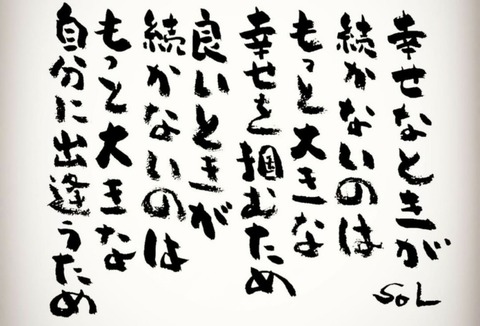 幸せなときが
続かないのは
もっと大きな
幸せを掴むため
良いときが
続かないのは
もっと大きな
自分に出逢うため
SOL